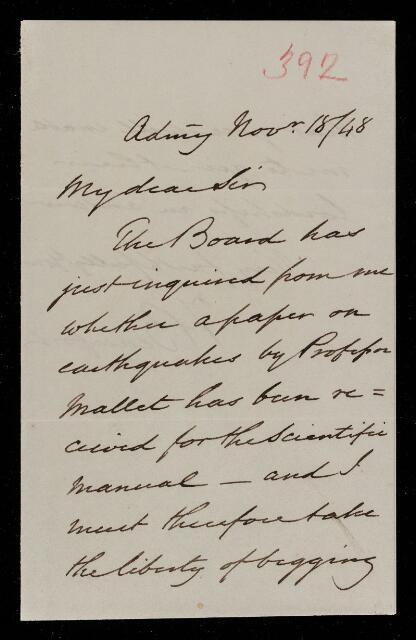 392
Admty Novr 18/48
My dear Sir
The Board has
just inquired from me
whether a paper on
earthquakes by Professor
Mallet has been re=
ceived for the Scientific
Manual — and I
must therefore take
the liberty of begging